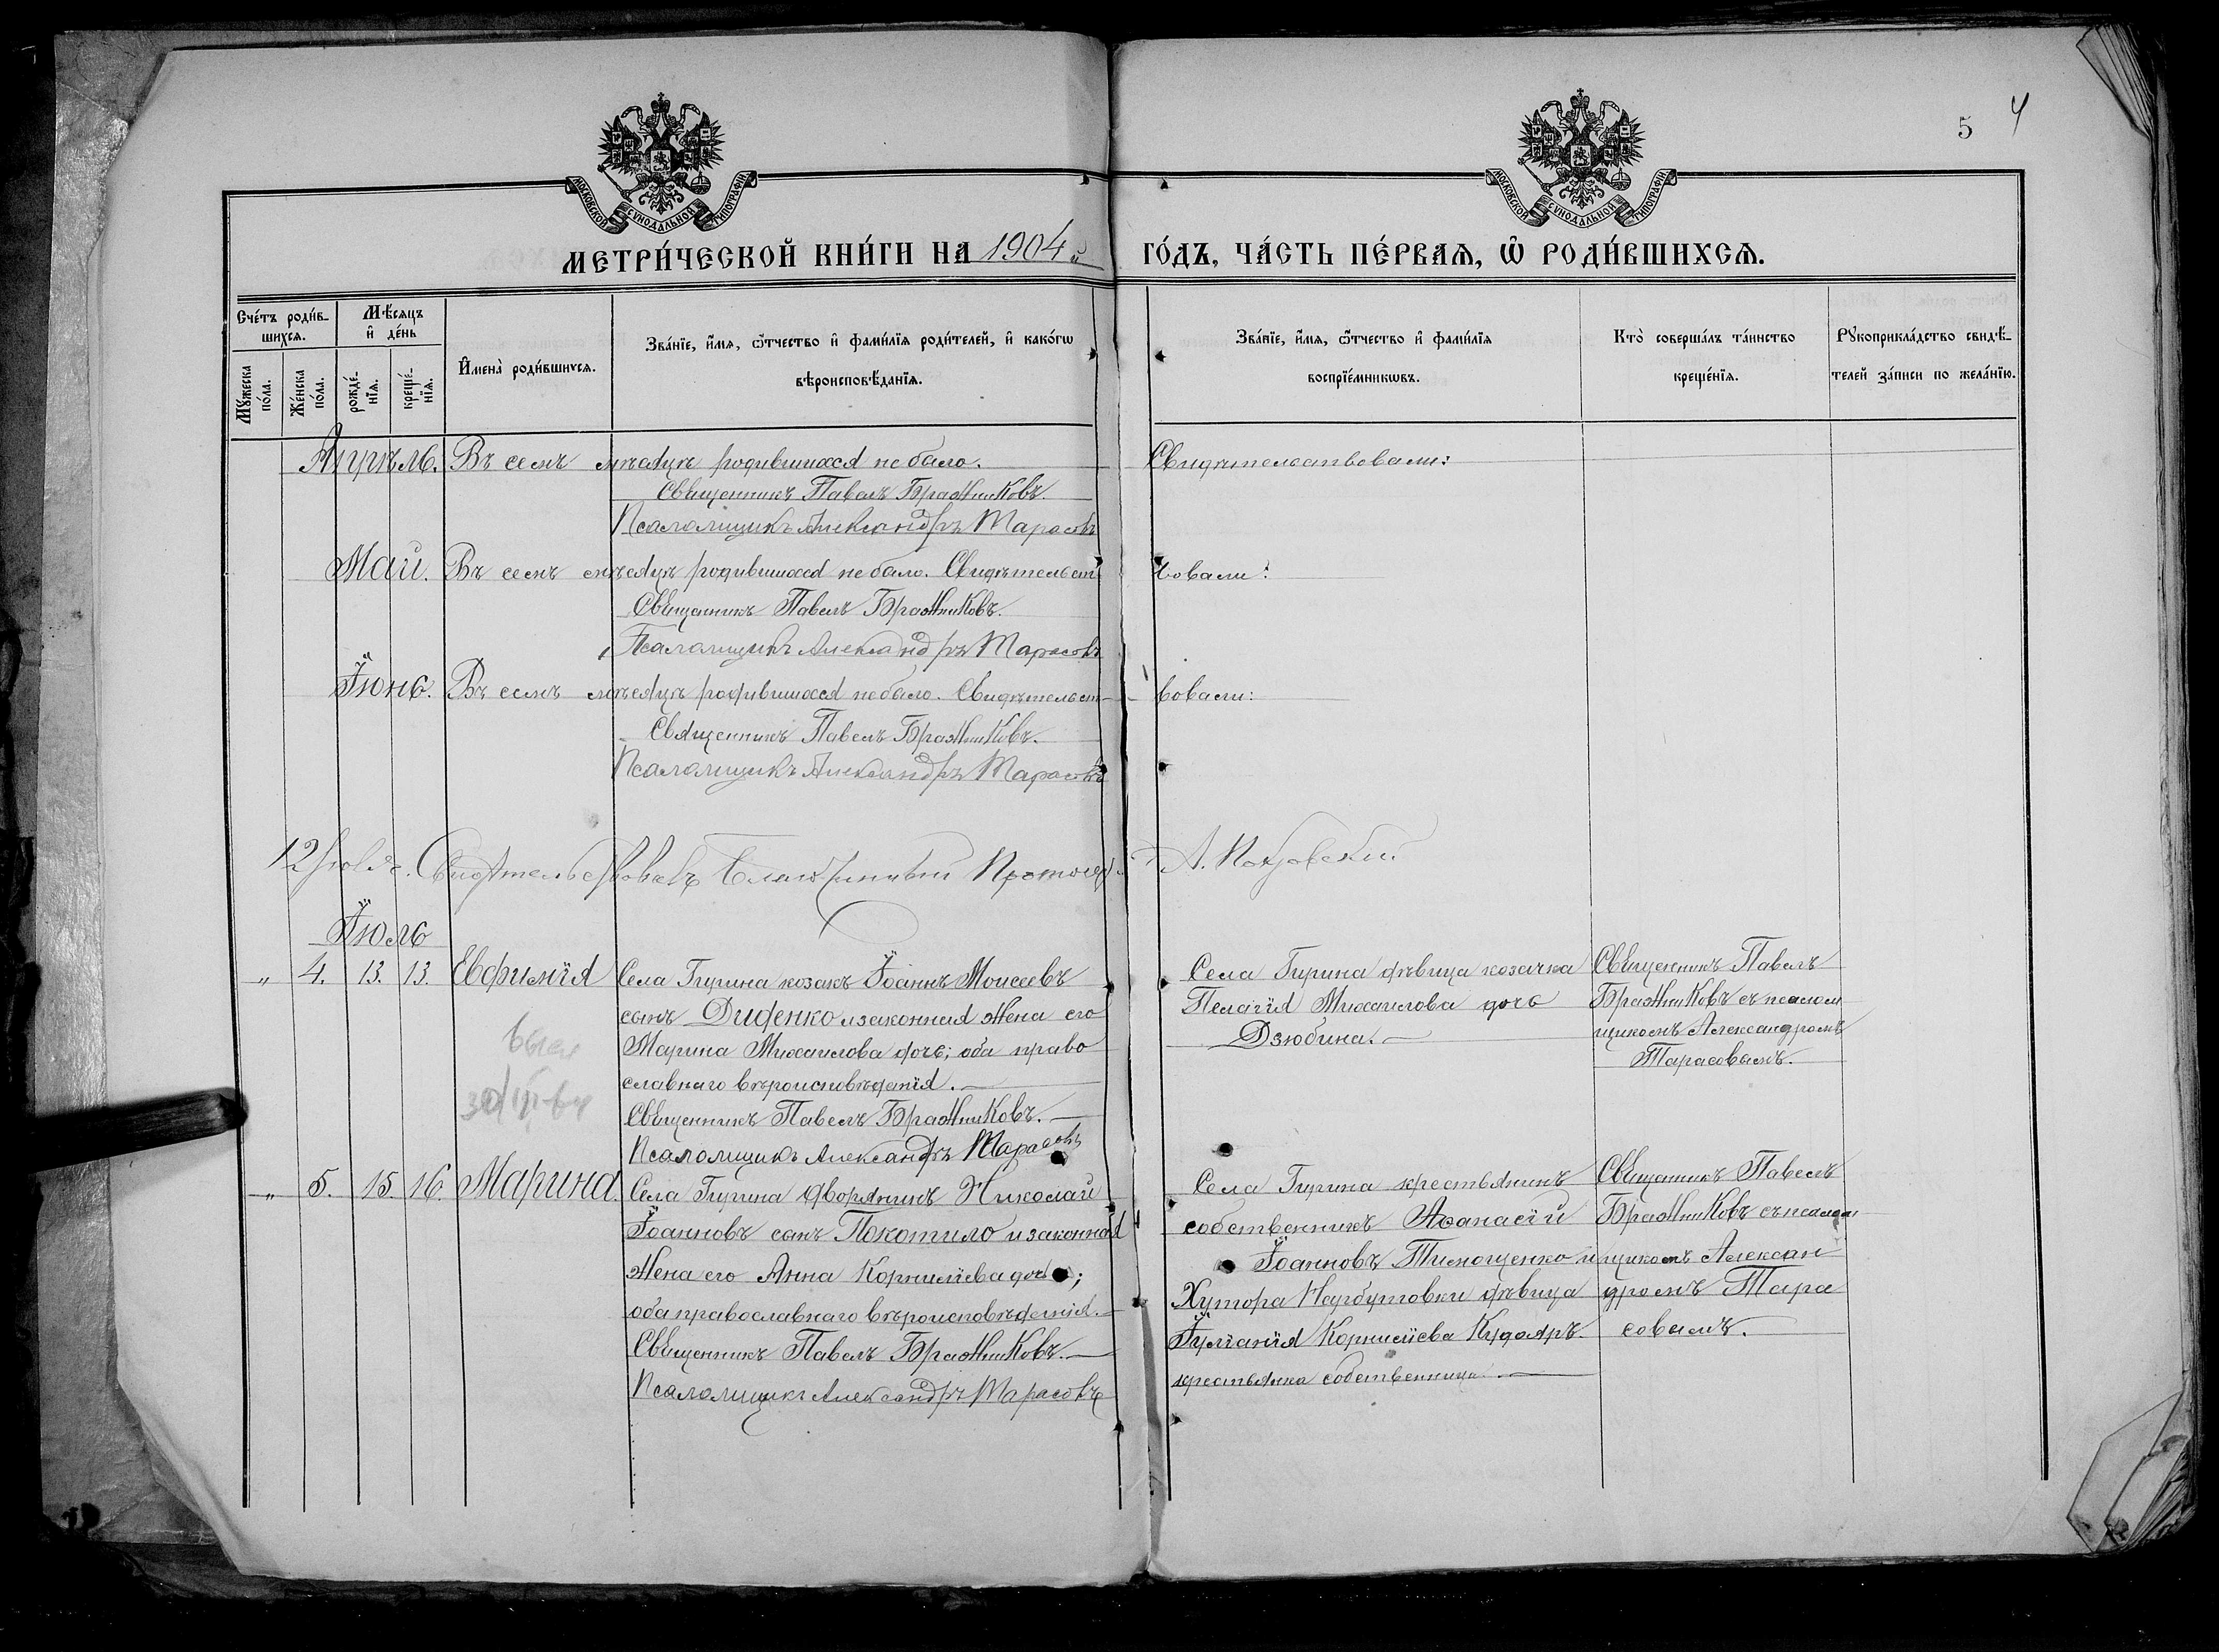 5 4
МОСКОВСКОЙ СѴНОДАЛЬНОЙ ТИПОГРАФІИ
МОСКОВСКОЙ СѴНОДАЛЬНОЙ ТИПОГРАФІИ
МЕТРИ́ЧЕСКОЙ КНИ́ГИ НА 1904 й ГО́ДЪ, ЧА́СТЬ ПЕ́РВАѦ, Ѡ҆ РОДИ́ВШИХСѦ.
Сче́тъ роди́в-
шихсѧ.
Мѣ́сяцъ
и҆ де́нь
Мꙋ́жеска
по́ла.
Же́нска
по́ла.
рожде́-
нїѧ.
креще́-
нїѧ.
И҆мена̀ роди́вшихсѧ.
Зва́нїе, и҆́мѧ, ѻ҆́тчество и҆ фами́лїѧ роди́телей, и҆ како́гѡ
вѣроисповѣ́данїѧ.
Зва́нїе, и҆́мѧ, ѻ҆́тчество и҆ фами́лїѧ
воспрїе́мникѡвъ.
Кто̀ соверша́лъ та́инство
креще́нїѧ.
Рꙋкоприкла́дство свидѣ́-
телей за́писи по жела́нїю.
Апрѣль. Въ семъ мѣсяцѣ родившихся не было. Свидѣтельствовали:
Священникъ Павелъ Бражниковъ.
Псаломщикъ Александръ Тарасовъ
Май. Въ семъ мѣсяцѣ родившихся не было. Свидѣтельст вовали:
Священникъ Павелъ Бражниковъ.
Псаломщикъ Александръ Тарасовъ
Іюнь. Въ семъ мѣсяцѣ родившихся не было. Свидѣтельст- вовали:
Священникъ Павелъ Бражниковъ.
Псаломщикъ Александръ Тарасовъ
12 Іюля. Свидѣтельствовалъ Благочинный Протоіер. А.
Іюль
" 4. 13. 13. Евфимія
Села Гирина козакъ Іоаннъ Моисеевъ
сынъ Диденко и законная жена его
Марина Михаилова дочь; оба право
славнаго вѣроисповѣданія.
Священникъ Павелъ Бражниковъ.
Псаломщикъ Александръ Тарасовъ
Села Гирина дѣвица козачка
Пелагія Михаилова дочь
Дзюбина.
Священникъ Павелъ
Бражниковъ съ псалом
щикомъ Александромъ
Тарасовымъ.
" 5. 15. 16. Марина
Села Гирина дворянинъ Николай
Іоанновъ сынъ Покотило и законная
жена его Анна Корниліева дочь;
оба православнаго вѣроисповѣданія.
Священникъ Павелъ Бражниковъ.
Псаломщикъ Александръ Тарасовъ
Села Гирина крестьянинъ
собственникъ Аѳанасій
Іоанновъ Тимощенко и
Хутора Нарбутовки дѣвица
Іуліанія Корниліева Кудояръ.
крестьянка собственница.
Священникъ Павелъ
Бражниковъ съ псалом
щикомъ Алексан
дромъ Тара
совымъ.